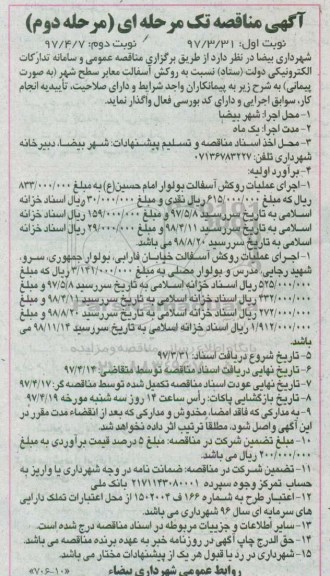 آگهی مناقصه تک مرحله ای (مرحله دوم)
نوبت اول: ۹۷/۳/۳۱ نوبت دوم: ۹۷/۴/۷
شهرداری بیضا در نظر دارد از طریق برگزاری مناقصه عمومی و سامانه تدارکات
الکترونیکی دولت (ستاد) نسبت به روکش آسفالت معابر سطح شهر (به صورت
پیمانی) به شرح زیر به پیمانکاران واجد شرایط و دارای صلاحیت، تأییدیه انجام
کار، سوابق اجرایی و دارای کد بورسی فعال واگذار نماید.
۱- محل اجرا: شهر بیضا
۲- مدت اجرا: یک ماه
۳- محل اخذ اسناد مناقصه و تسلیم پیشنهادات: شهر بیضا، دبیرخانه
شهرداری تلفن: ۰۷۱۳۶۷۸۳۲۲۷
۴- برآورد اولیه:
۱-اجرای عملیات روکش آسفالت بولوار امام حسین(ع) به مبلغ ۸۳۳/۰۰۰/۰۰۰
ریال که مبلغ ۶۱۵/۰۰۰/۰۰۰ ریال نقدی و مبلغ ۳۰/۰۰۰/۰۰۰ ریال اسناد خزانه
اسلامی به تاریخ سررسید ۹۷/۵/۸ و مبلغ ۱۵۹/۰۰۰/۰۰۰ ریال اسناد خزانه
اسلامی به تاریخ سررسید ۹۸/۳/۱۱ و مبلغ ۲۹/۰۰۰/۰۰۰ ریال اسناد خزانه
اسلامی به تاریخ سررسید ۹۸/۸/۲۰ می باشد.
۱- اجرای عملیات روکش آسفالت خیابان فارابی، بولوار جمهوری، سرو،
شهید رجایی، مدرس و بولوار مصلی به مبلغ ۳/۱۴۱/۰۰۰/۰۰۰ ریال که مبلغ
۵۲۵/۰۰۰/۰۰۰ ریال اسناد خزانه اسلامی به تاریخ سررسید ۹۷/۵/۸ و مبلغ
۴۳۲/۰۰۰/۰۰۰ ریال اسناد خزانه اسلامی به تاریخ سررسید ۹۸/۳/۱۱ و مبلغ
۲۷۲/۰۰۰/۰۰۰ ریال اسناد خزانه اسلامی به تاریخ سررسید ۹۸/۸/۲۰ و مبلغ
۱/۹۱۲/۰۰۰/۰۰۰ ریال اسناد خزانه اسلامی به تاریخ سررسید ۹۸/۱۱/۱۴ می
باشد.
۵- تاریخ شروع دریافت اسناد: ۹۷/۳/۳۱
۶- تاریخ نهایی دریافت اسناد مناقصه توسط متقاضی: ۹۷/۴/۱۴
۷- تاریخ نهایی عودت اسناد مناقصه تکمیل شده توسط مناقصه گر: ۹۷/۴/۱۷
۸- تاریخ بازگشایی پاکات: رأس ساعت ۱۴ روز سه شنبه مورخه ۹۷/۴/۱۹
۹- به مدارکی که فاقد امضا، مخدوش و مدارکی که بعد از انقضاء مدت مقرر در
این آگهی واصل شود، مطلقا ترتیب اثر داده نخواهد شد.
۱۰- مبلغ تضمین شرکت در مناقصه: مبلغ ۵ درصد قیمت برآوردی به مبلغ
۲۰۰/۰۰۰/۰۰۰ ریال می باشد.
۱۱- تضمین شرکت در مناقصه: ضمانت نامه در وجه شهرداری یا واریز به
حساب تمرکز وجوه سپرده ۲۱۷۱۱۴۳۰۸۰۰۰۱ بانک ملی
۱۲-اعتبار طرح به شماره ۱۶۶ ف ۱۵۰۲۰۰۳ از محل اعتبارات تملک دارایی
های سرمایه ای سال ۹۶ شهرداری می باشد.
۱۳- سایر اطلاعات و جزییات مربوطه در اسناد مناقصه درج شده است.
۱۴- حق الدرج چاپ آگهی در روزنامه خبر به عهده برنده مناقصه می باشد.
۱۵- شهرداری در رد یا قبول هر یک از پیشنهادات مختار می باشد.
روابط عمومی شهرداری بیضاء «۷۰۶-۱۰»